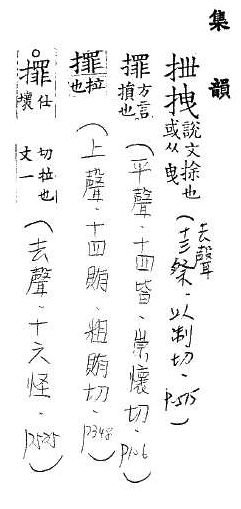 集韻
抴拽 說文捈也或从曳 (去聲·十三祭·以制切·p.515)
方言損也 (平聲·十四皆·崇懷切·p106)
拉也 (上聲·十四賄·粗賄切·p348)
仕壞切拉也文一 (去聲·十六怪·p525)